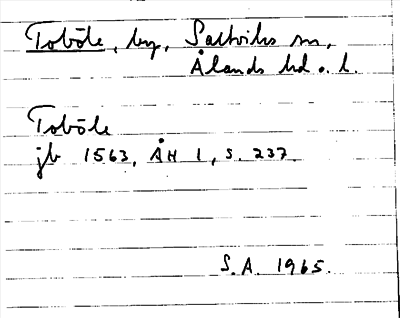 Toböle, by, Saltviks sn,
Ålands hd o. l.
Toböle
jb 1563, ÅH 1, s. 237
S.A. 1965.